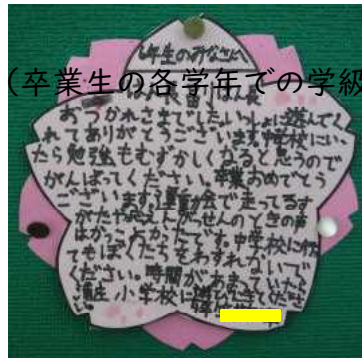 6年生のみなさんへ
(卒業生の各学年での学級
はん長 副はん長
おつかれさまでした。いっしょに遊んでく
れてありがとうございます。中学校にい
たら勉強もむずかしくなると思うので
がんばってください。卒業おめでとう
ございます。運動会で走ってるす
がたや応えんがっせんのときの声
はかっこよかったです。中学校に行っ
てもぼくたちもわすれないで
ください。時間があまっていたら
小学校に遊びにきてくださ